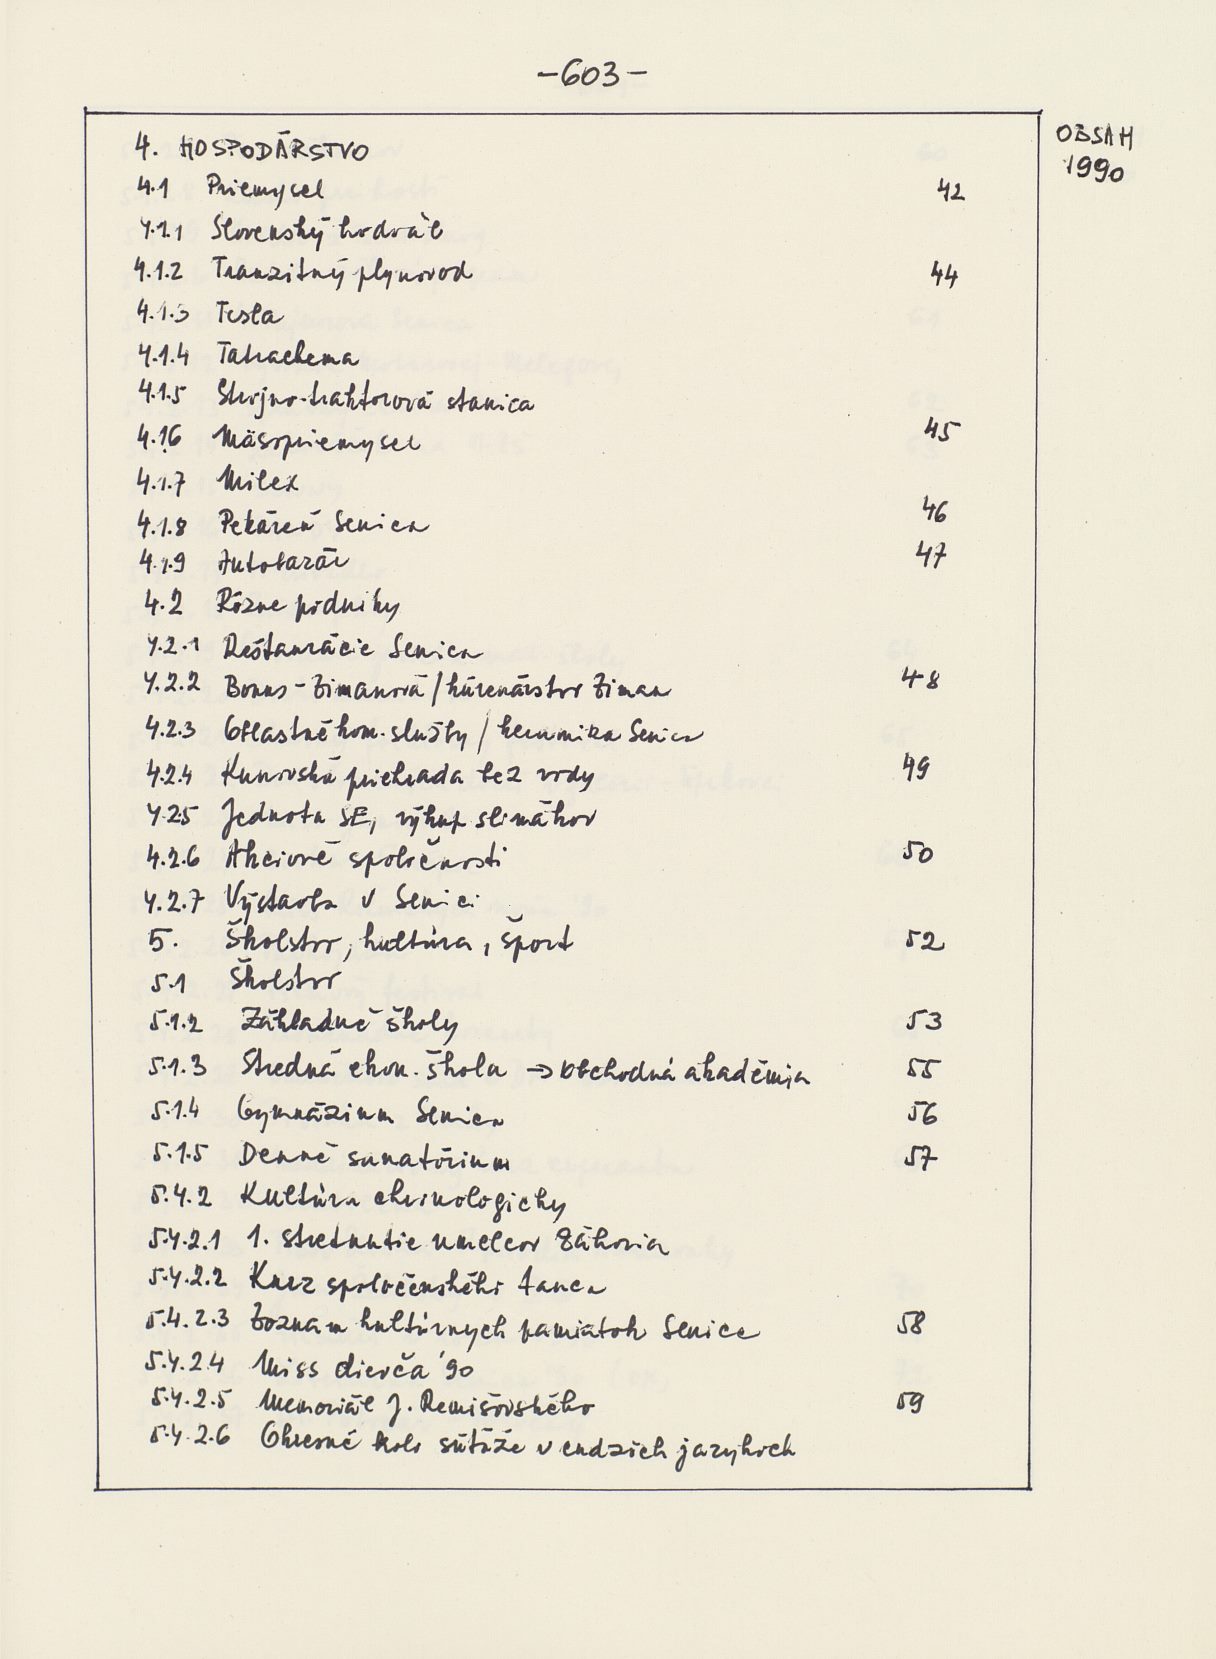 -603-
OBSAH
1990
4. HOSPODÁRSTVO
4.1 Priemysel 42
4.1.1 Slovenský hodváb
4.1.2 Tranzitný plynovod 44
4.1.3 Tesla
4.1.4 Tatrachema
4.1.5 Strojno-traktorová stanica
4.1.6 Mäsopriemysel 45
4.1.7 Milex
4.1.8 Pekáreň Senica 46
4.1.9 Autobazár 47
4.2 Rôzne podniky
4.2.1 Reštaurácie Senica
4.2.2 Bonus - Zimanová / kúrenárstvo Ziman 48
4.2.3 Oblastné kom. služby / keramika Senica
4.2.4 Kunovská priehrada bez vody 49
4.2.5 Jednota SE, výkup slimákov
4.2.6 Akciové spoločnosti 50
4.2.7 Výstavba v Senici
5. Školstvo, kultúra, šport 52
5.1 Školstvo
5.1.2 Základné školy 53
5.1.3 Stredná ekon. škola → Obchodná akadémia 55
5.1.4 Gymnázium Senica 56
5.1.5 Denné sanatórium 57
5.4.2 Kultúra chronologicky
5.4.2.1 1. stretnutie umelcov Záhoria
5.4.2.2 Kurz spoločenského tanca
5.4.2.3 Zoznam kultúrnych pamiatok Senice 58
5.4.2.4 Miss dievča '90
5.4.2.5 Memoriál J. Remišovského 59
5.4.2.6 Okresné kolo súťaže v cudzích jazykoch